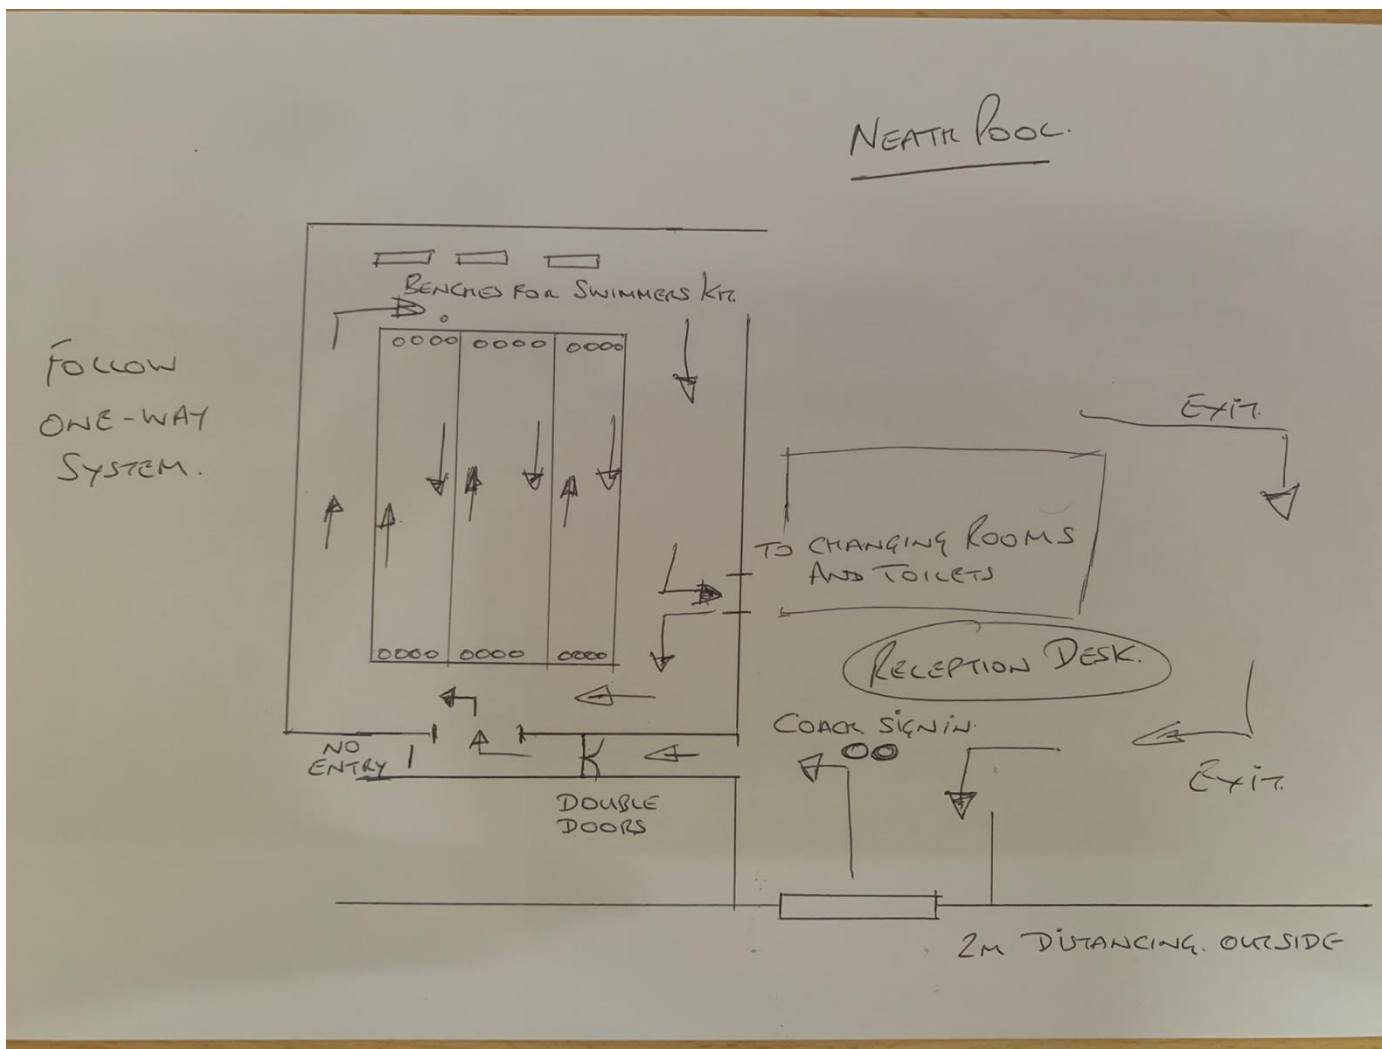 NEATH POOL.
BENCHES FOR SWIMMERS KIT.
FOLLOW
ONE-WAY
SYSTEM.
EXIT.
TO CHANGING ROOMS
AND TOILETS
RECEPTION DESK.
COACH SIGN IN.
NO
ENTRY
EXIT.
DOUBLE
DOORS
2M DISTANCING. OUTSIDE